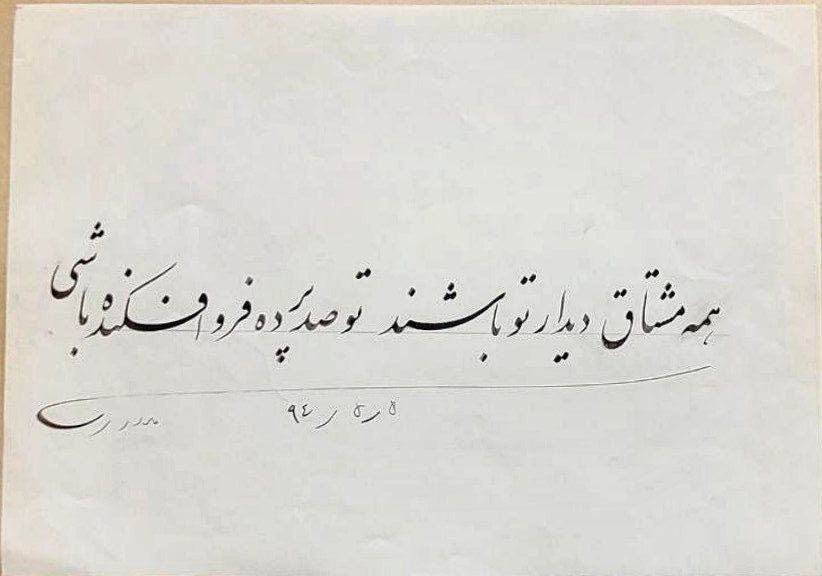 همه مشتاق دیدار تو باشند تو صد پرده فرو افکنده باشی
۹۴ ر ۵ ر ۵